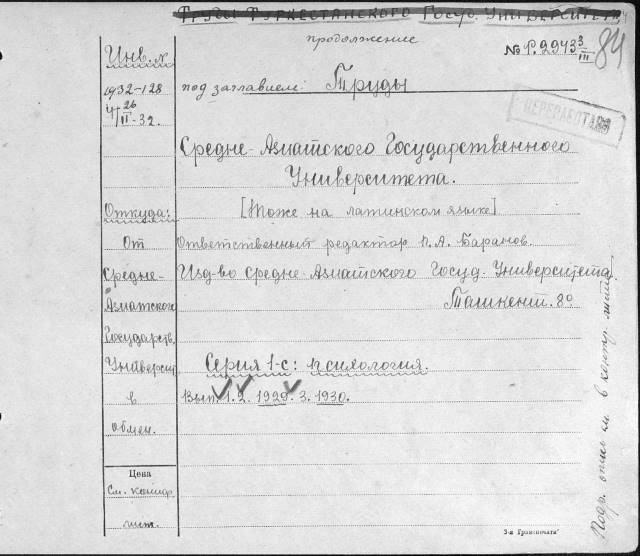 Труды Туркестанского Госуд. Университета
продолжение
№ Р.2943 3/III
84
ПЕРЕРАБОТАНО
Инв. №
1932-128
26/II-32.
под заглавием: Труды
Средне-Азиатского Государственного
Университета.
[Тоже на латинском языке]
Ответственный редактор П.А. Баранов.
Изд-во Средне-Азиатского Госуд. Университета.
Ташкент. 8º
Серия 1-с: психология.
Вып. 1. 2. 1929. 3. 1930.
Откуда:
От
Средне-
Азиатского
Государств.
Университ.
в
обмен.
Цена
См. контр.
лист.
Подр. опись кн. в контр. листе
3-я Гранпечати